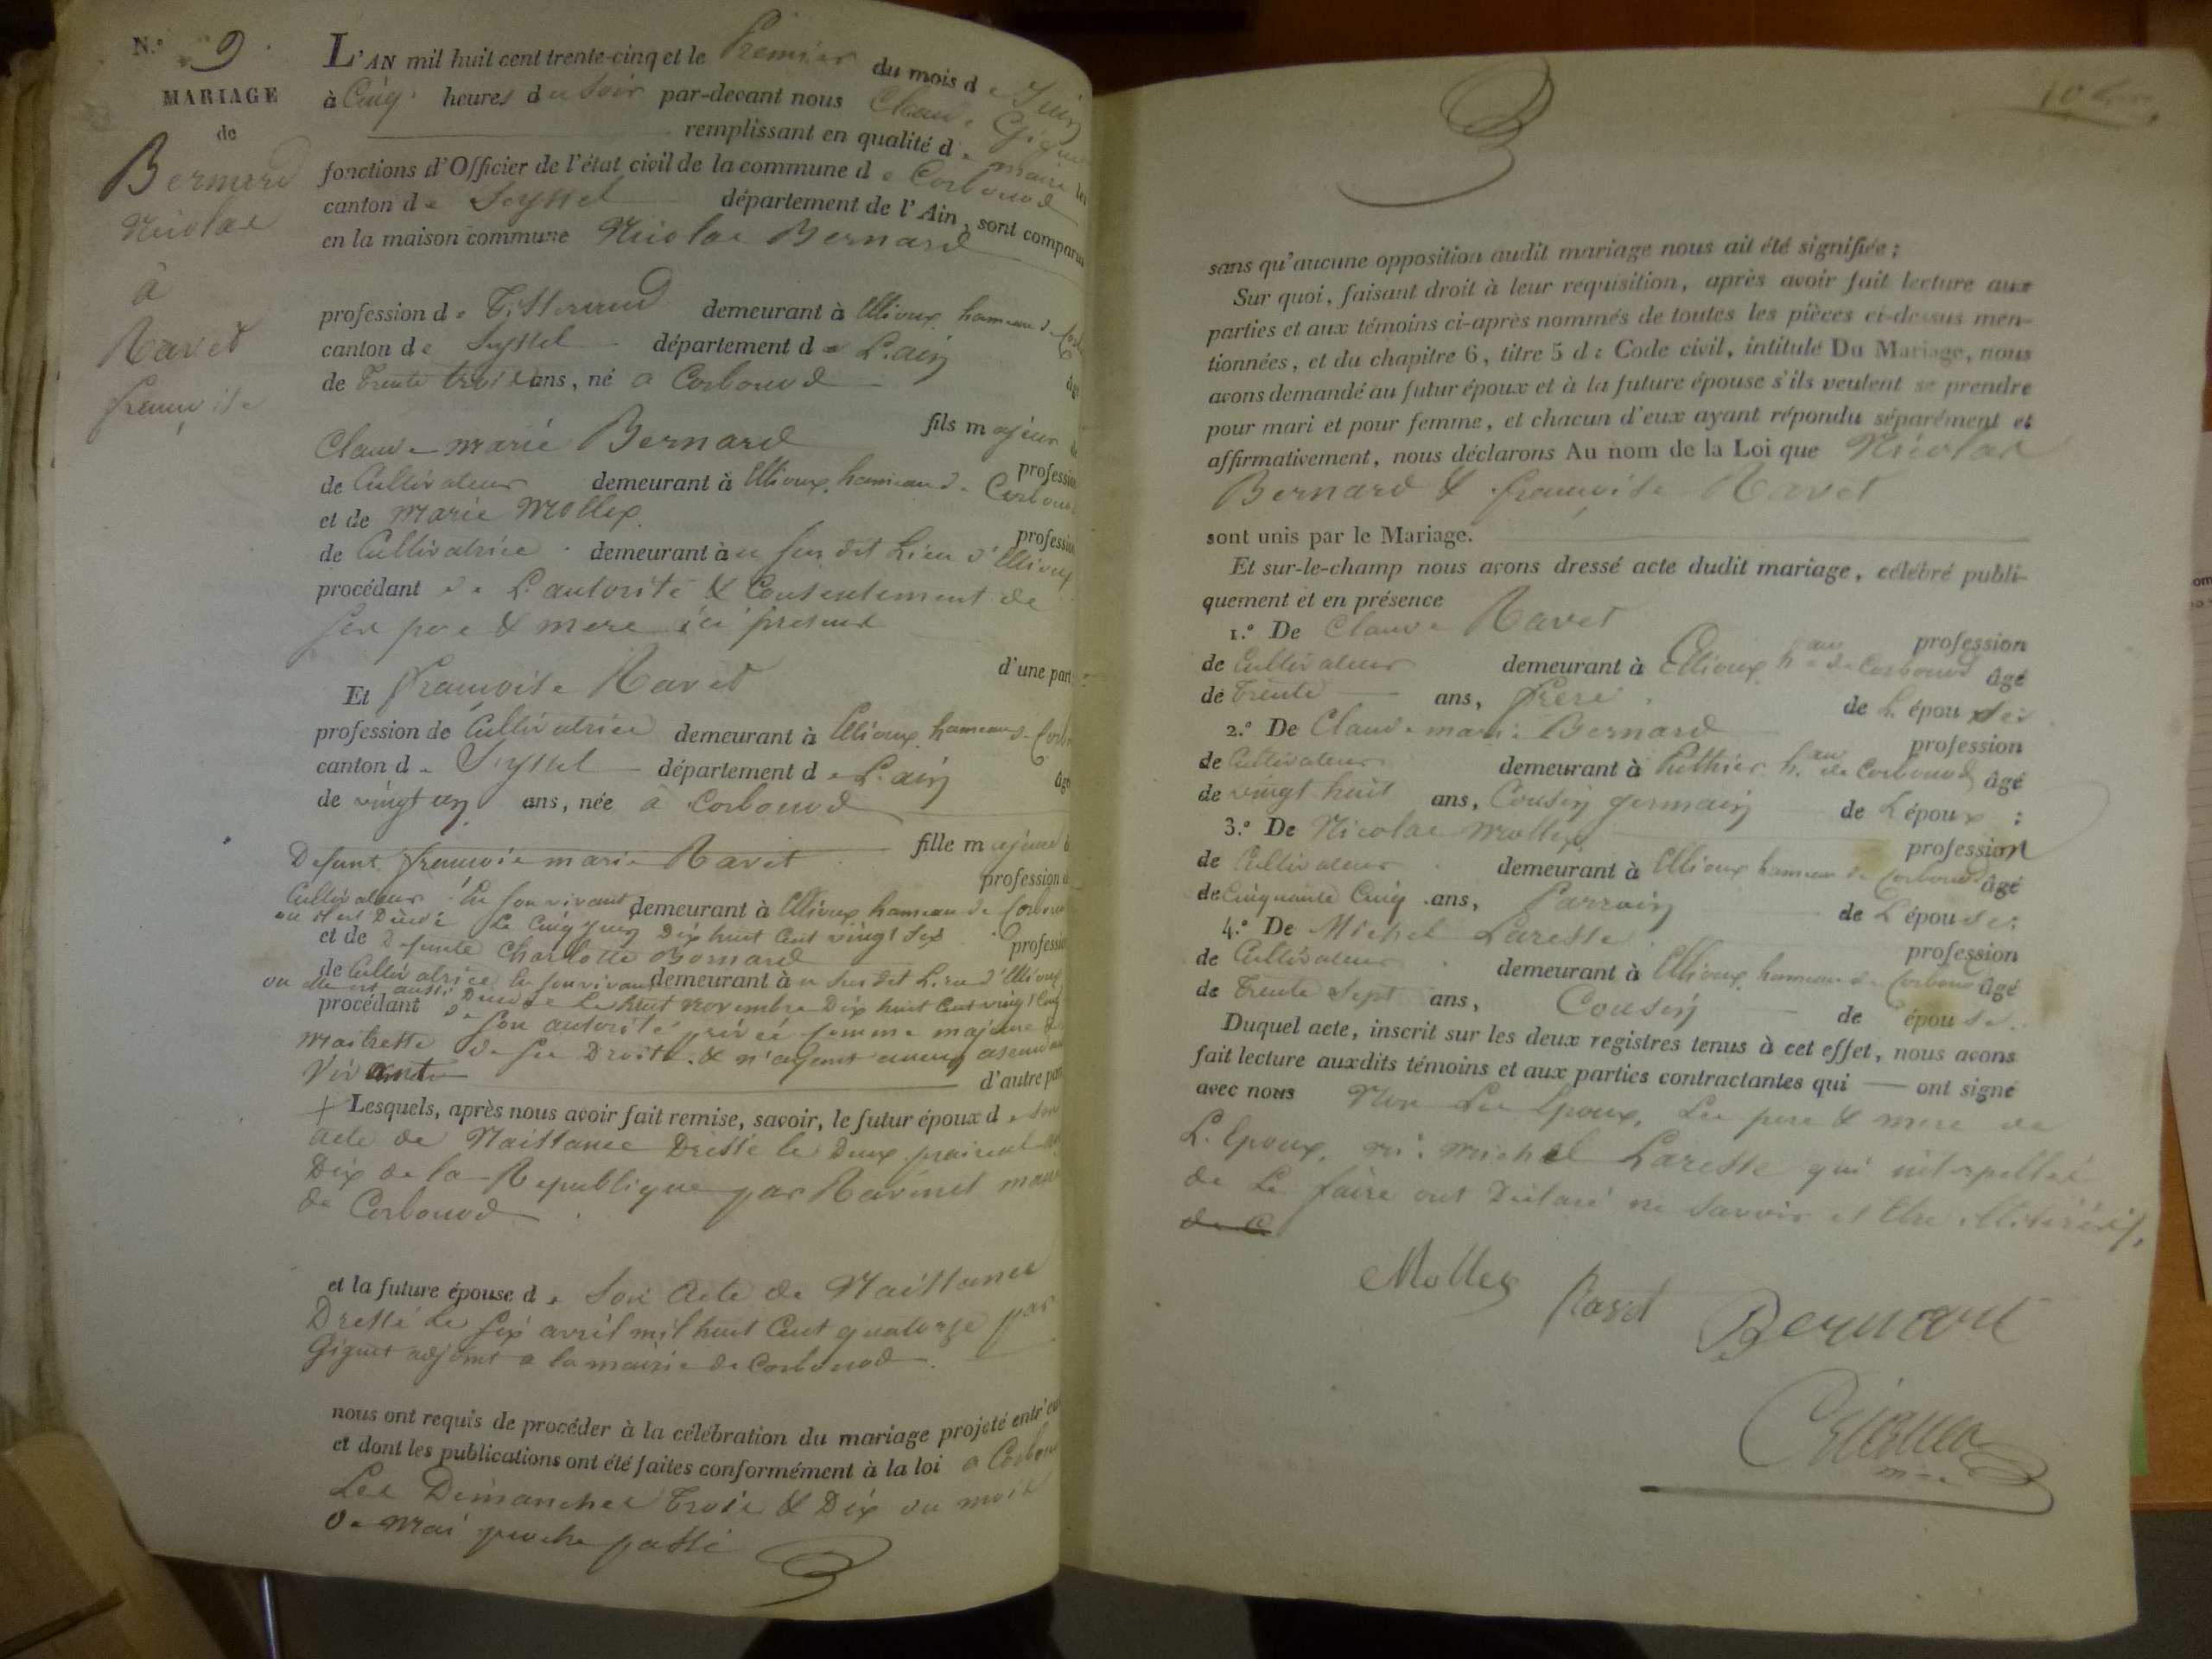 N.° 9
MARIAGE
de
Bernard
Nicolas
à
Ravet
françoise
L'AN mil huit cent trente-cinq et le Premier du mois de Juin
à Cinq heures du Soir par-devant nous Claude Giguet
remplissant en qualité de maire les
fonctions d'Officier de l'état civil de la commune de Corbonod
canton de Seyssel département de l'Ain, sont comparus
en la maison commune Nicolas Bernard
profession de Tisserand demeurant à Ellioux hameau de
canton de Seyssel département de L'ain
de trente trois ans, né a Corbonod
fils majeur de
Claude marie Bernard profession
de Cultivateur demeurant à Ellioux hameau de Corbonod
et de Marie Mollex profession
de Cultivatrice demeurant au susdit Lieu d'Ellioux
procédant de L'autorité & Consentement de
ses pere & mere ici present
d'une part
Et françoise Ravet
profession de Cultivatrice demeurant à Ellioux hameau de
canton de Seyssel département de L'ain
de vingt un ans, née à Corbonod
fille majeure de
Defunt françois marie Ravet profession de
Cultivateur En son vivant demeurant à Ellioux hameau de Corbonod
ou il est Décédé Le Cinq Juin Dix huit Cent vingt Six
et de Defunte Charlotte Bornard profession
de Cultivatrice En son vivant demeurant au susdit Lieu d'Ellioux
ou elle est aussi Décédée Le huit Novembre Dix huit Cent vingt Cinq
procédant de son autorité privée femme majeure &
Maitresse de ses Droits & n'ayant aucun ascendant
Vivant d'autre part
Lesquels, après nous avoir fait remise, savoir, le futur époux de son
acte de Naissance Dressé le Deux prairial an
Dix de la Republique par Ravinet maire
de Corbonod
et la future épouse de Son Acte de Naissance
Dressé le Six avril mil huit Cent quatorze par
Giguet adjoint a la mairie de Corbonod
nous ont requis de procéder à la célébration du mariage projeté entr'eux
et dont les publications ont été faites conformément à la loi a Corbonod
Les Dimanches Trois & Dix du mois
de Mai proche passé
sans qu'aucune opposition audit mariage nous ait été signifiée;
Sur quoi, faisant droit à leur requisition, après avoir fait lecture aux
parties et aux témoins ci-après nommés de toutes les pièces ci-dessus men-
tionnées, et du chapitre 6, titre 5 du Code civil, intitulé Du Mariage, nous
avons demandé au futur époux et à la future épouse s'ils veulent se prendre
pour mari et pour femme, et chacun d'eux ayant répondu séparément et
affirmativement, nous déclarons Au nom de la Loi que Nicolas
Bernard & françoise Ravet
sont unis par le Mariage.
Et sur-le-champ nous avons dressé acte dudit mariage, célébré publi-
quement et en présence
1.° De Claude Ravet profession
de Cultivateur demeurant à Ellioux h.au de Corbonod âgé
de Trente ans, frere de L'épouse
2.° De Claude marie Bernard profession
de Cultivateur demeurant à h.au de Corbonod âgé
de vingt huit ans, Cousin germain de L'époux ;
3.° De Nicolas Mollex profession
de Cultivateur demeurant à Ellioux hameau de Corbonod âgé
de Cinquante Cinq ans, Parrain de L'épouse;
4.° De Michel Laresse profession
de Cultivateur demeurant à Ellioux hameau de Corbonod âgé
de Trente Sept ans, Cousin de épouse.
Duquel acte, inscrit sur les deux registres tenus à cet effet, nous avons
fait lecture auxdits témoins et aux parties contractantes qui — ont signé
avec nous Non Les Epoux, Les pere & mere de
L'Epoux, ni Michel Laresse qui interpellés
de Le faire ont Déclaré ne savoir et Etre illitérés
Mollex Ravet Bernard
Giguet